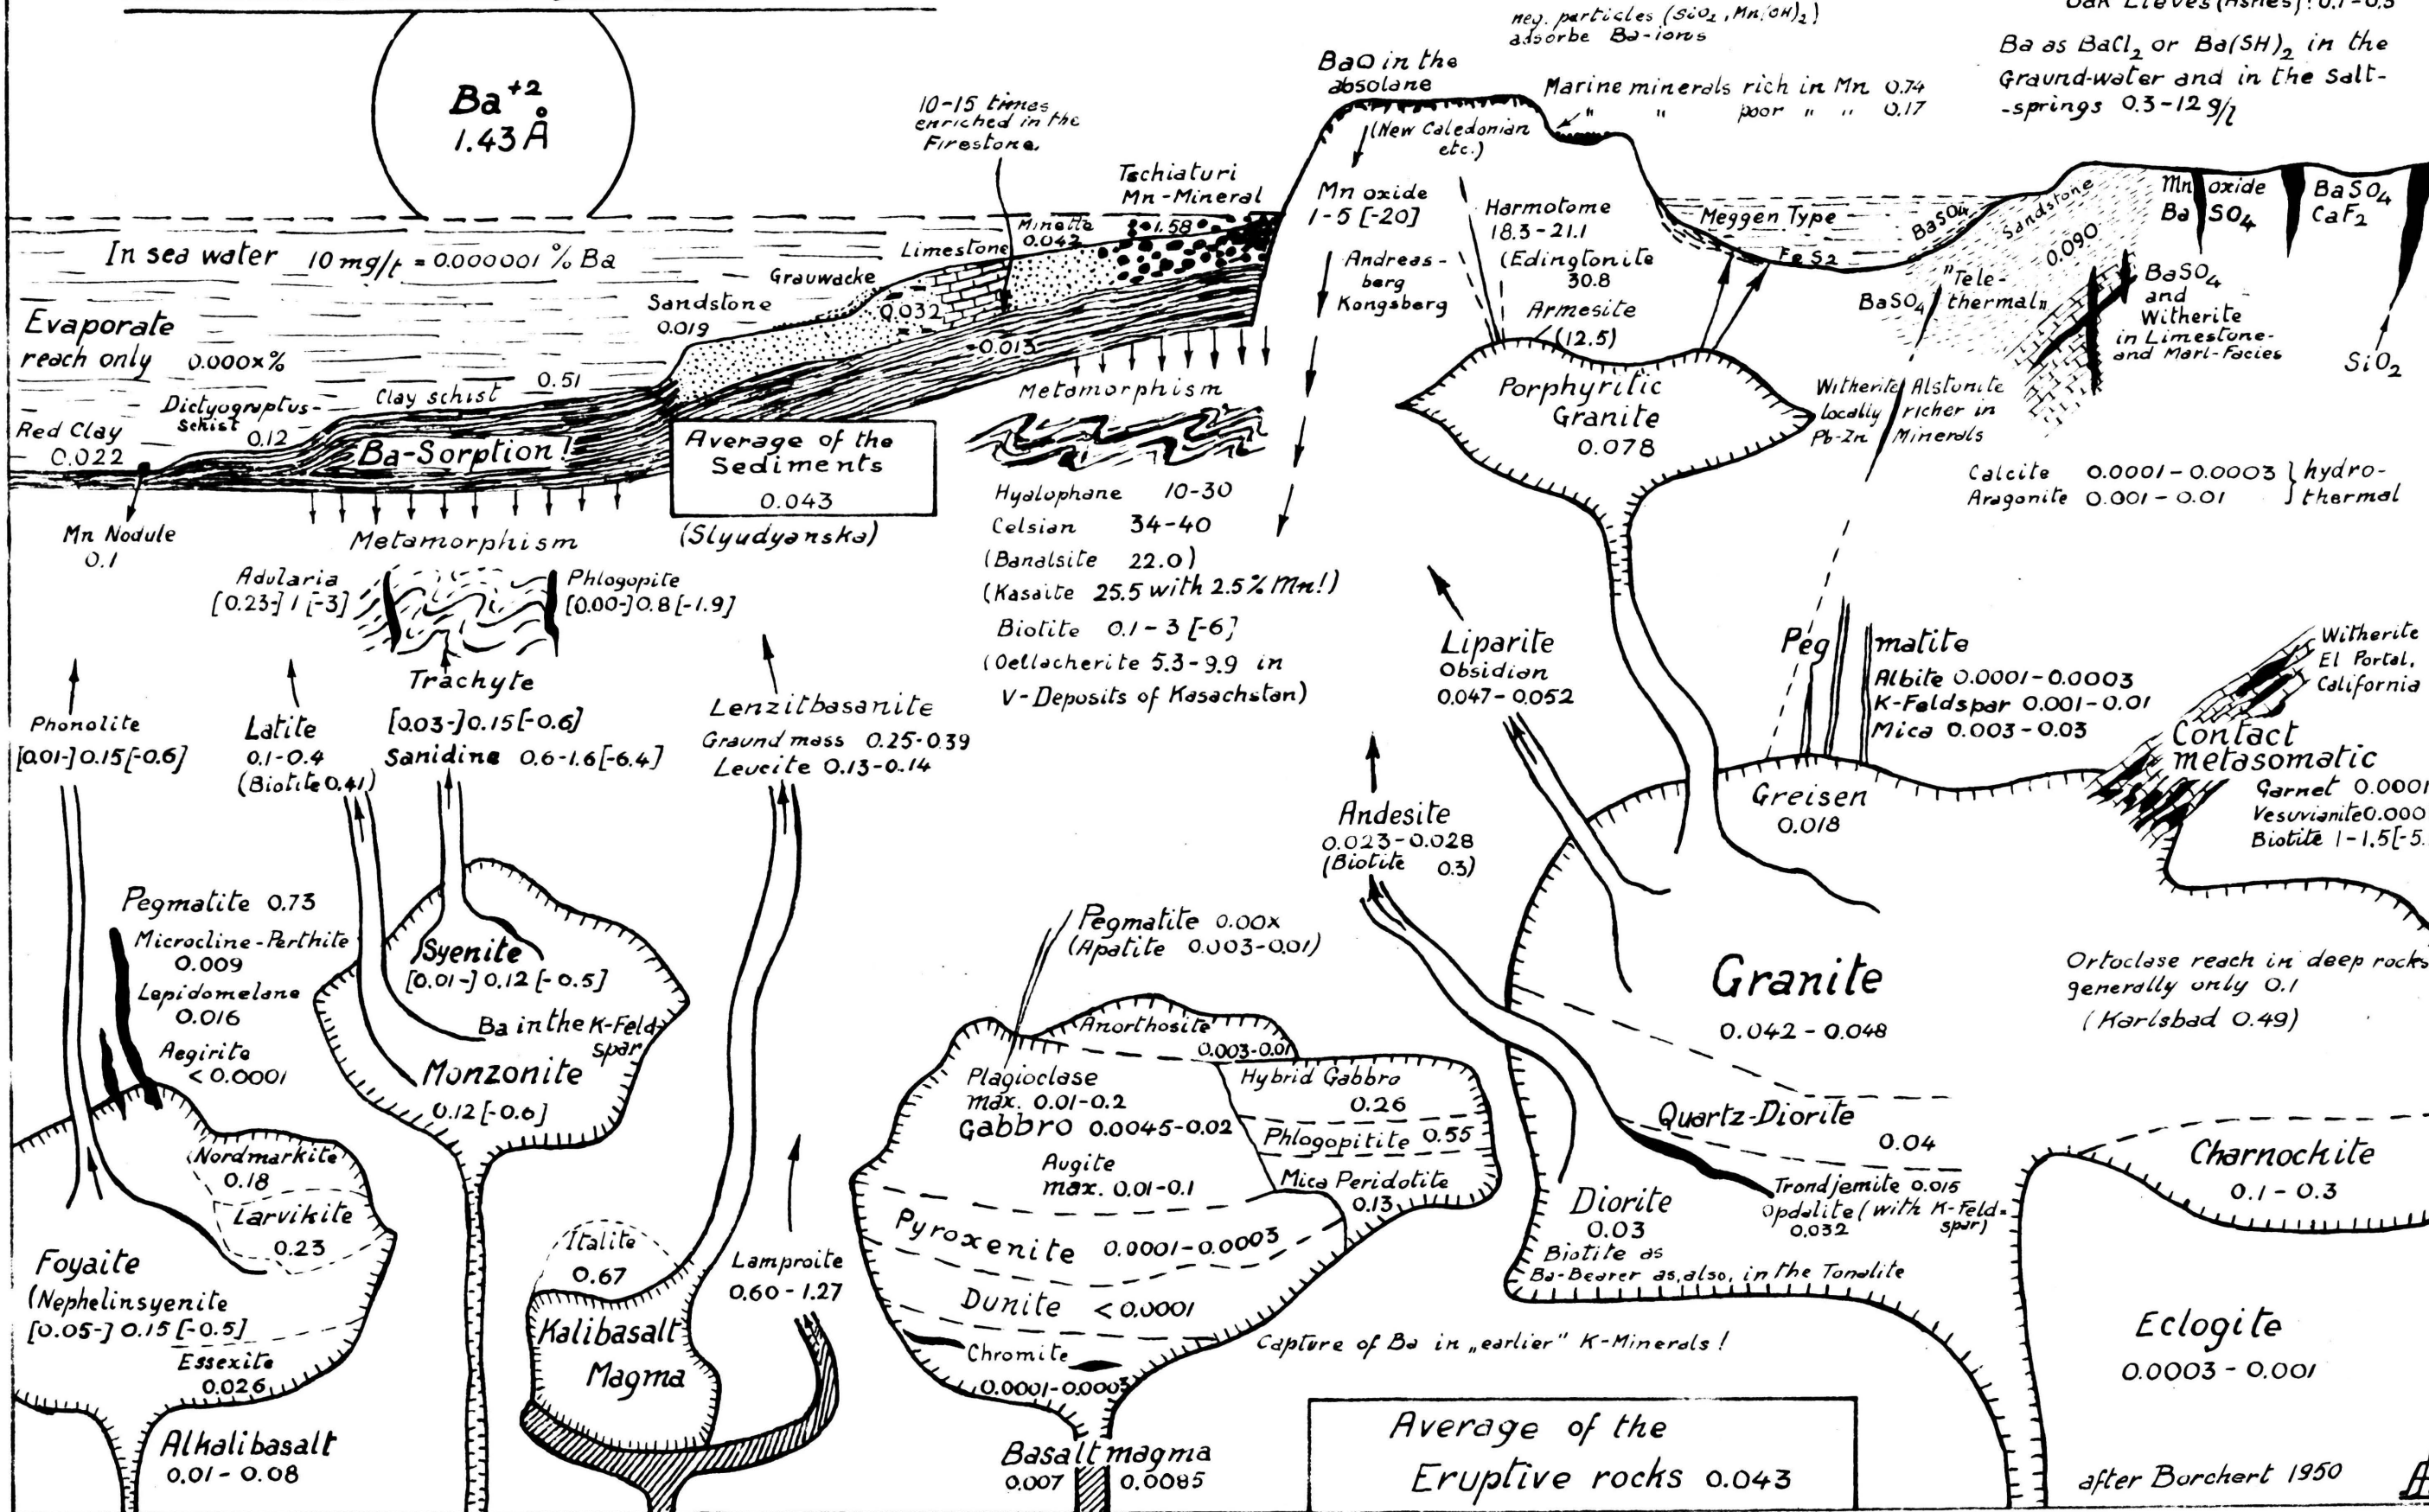 neg. particles (SiO₂, Mn(OH)₂)
adsorbe Ba-ions
Ba as BaCl₂ or Ba(SH)₂ in the
Graund-water and in the salt-
-springs 0.3-12 g/l
Ba⁺²
1.43 Å
10-15 times
enriched in the
Firestone.
BaO in the
absolane
(New Caledonian
etc.)
Marine minerals rich in Mn 0.74
" " poor " " 0.17
Tschiaturi
Mn-Mineral
1.58
Minette
0.042
Limestone
Grauwacke
0.032
Sandstone
0.019
0.013
In sea water 10 mg/t = 0.000001 % Ba
Evaporate
reach only 0.000x%
Clay schist 0.51
Dictyograptus-
Schist
0.12
Red Clay
0.022
Ba-Sorption!
Average of the
Sediments
0.043
(Slyudyanska)
Mn Nodule
0.1
Metamorphism
Metamorphism
Mn oxide
1-5 [-20]
Andreas-
berg
Kongsberg
Harmotome
18.3-21.1
(Edingtonite
30.8
Armesite
(12.5)
Meggen Type
BaSO₄
FeS₂
Sandstone
0.090
Mn oxide
Ba SO₄
BaSO₄
CaF₂
BaSO₄
"Tele-
thermal"
BaSO₄
and
Witherite
in Limestone-
and Marl-Facies
SiO₂
Porphyritic
Granite
0.078
Witherite Alstonite
locally richer in
Pb-Zn Minerals
Calcite 0.0001-0.0003 } hydro-
Aragonite 0.001-0.01 } thermal
Hyalophane 10-30
Celsian 34-40
(Banalsite 22.0)
(Kasaite 25.5 with 2.5% Mn!)
Biotite 0.1-3 [-6]
(Oellacherite 5.3-9.9 in
V-Deposits of Kasachstan)
Adularia
[0.23-] 1 [-3]
Phlogopite
[0.00-] 0.8 [-1.9]
Trachyte
[0.03-] 0.15 [-0.6]
Sanidine 0.6-1.6 [-6.4]
Phonolite
[0.01-] 0.15 [-0.6]
Latite
0.1-0.4
(Biotite 0.41)
Lenzitbasanite
Graund mass 0.25-0.39
Leucite 0.13-0.14
Liparite
Obsidian
0.047-0.052
Pegmatite
Albite 0.0001-0.0003
K-Feldspar 0.001-0.01
Mica 0.003-0.03
Witherite
El Portal,
California
Contact
metasomatic
Garnet 0.0001
Vesuvianite 0.000
Biotite 1-1.5 [-5.
Andesite
0.023-0.028
(Biotite 0.3)
Greisen
0.018
Pegmatite 0.73
Microcline-Perthite
0.009
Lepidomelane
0.016
Aegirite
<0.0001
Syenite
[0.01-] 0.12 [-0.5]
Ba in the K-Feld-
spar
Monzonite
0.12 [-0.6]
Pegmatite 0.00x
(Apatite 0.003-0.01)
Anorthosite
0.003-0.01
Plagioclase
max. 0.01-0.2
Gabbro 0.0045-0.02
Augite
max. 0.01-0.1
Hybrid Gabbro
0.26
Phlogopitite 0.55
Mica Peridotite
0.13
Pyroxenite 0.0001-0.0003
Dunite <0.0001
Chromite
0.0001-0.0003
Basaltmagma
0.007 0.0085
Granite
0.042-0.048
Ortoclase reach in deep rocks
generally only 0.1
(Karlsbad 0.49)
Quartz-Diorite
0.04
Trondjemite 0.015
Opdalite (with K-Feld-
0.032 spar)
Diorite
0.03
Biotite as
Ba-Bearer as, also, in the Tonalite
Charnockite
0.1-0.3
Eclogite
0.0003-0.001
Nordmarkite
0.18
Larvikite
0.23
Foyaite
(Nephelinsyenite
[0.05-] 0.15 [-0.5]
Essexite
0.026
Alkalibasalt
0.01-0.08
Italite
0.67
Kalibasalt
Magma
Lamproite
0.60-1.27
Capture of Ba in „earlier" K-Minerals!
Average of the
Eruptive rocks 0.043
after Borchert 1950